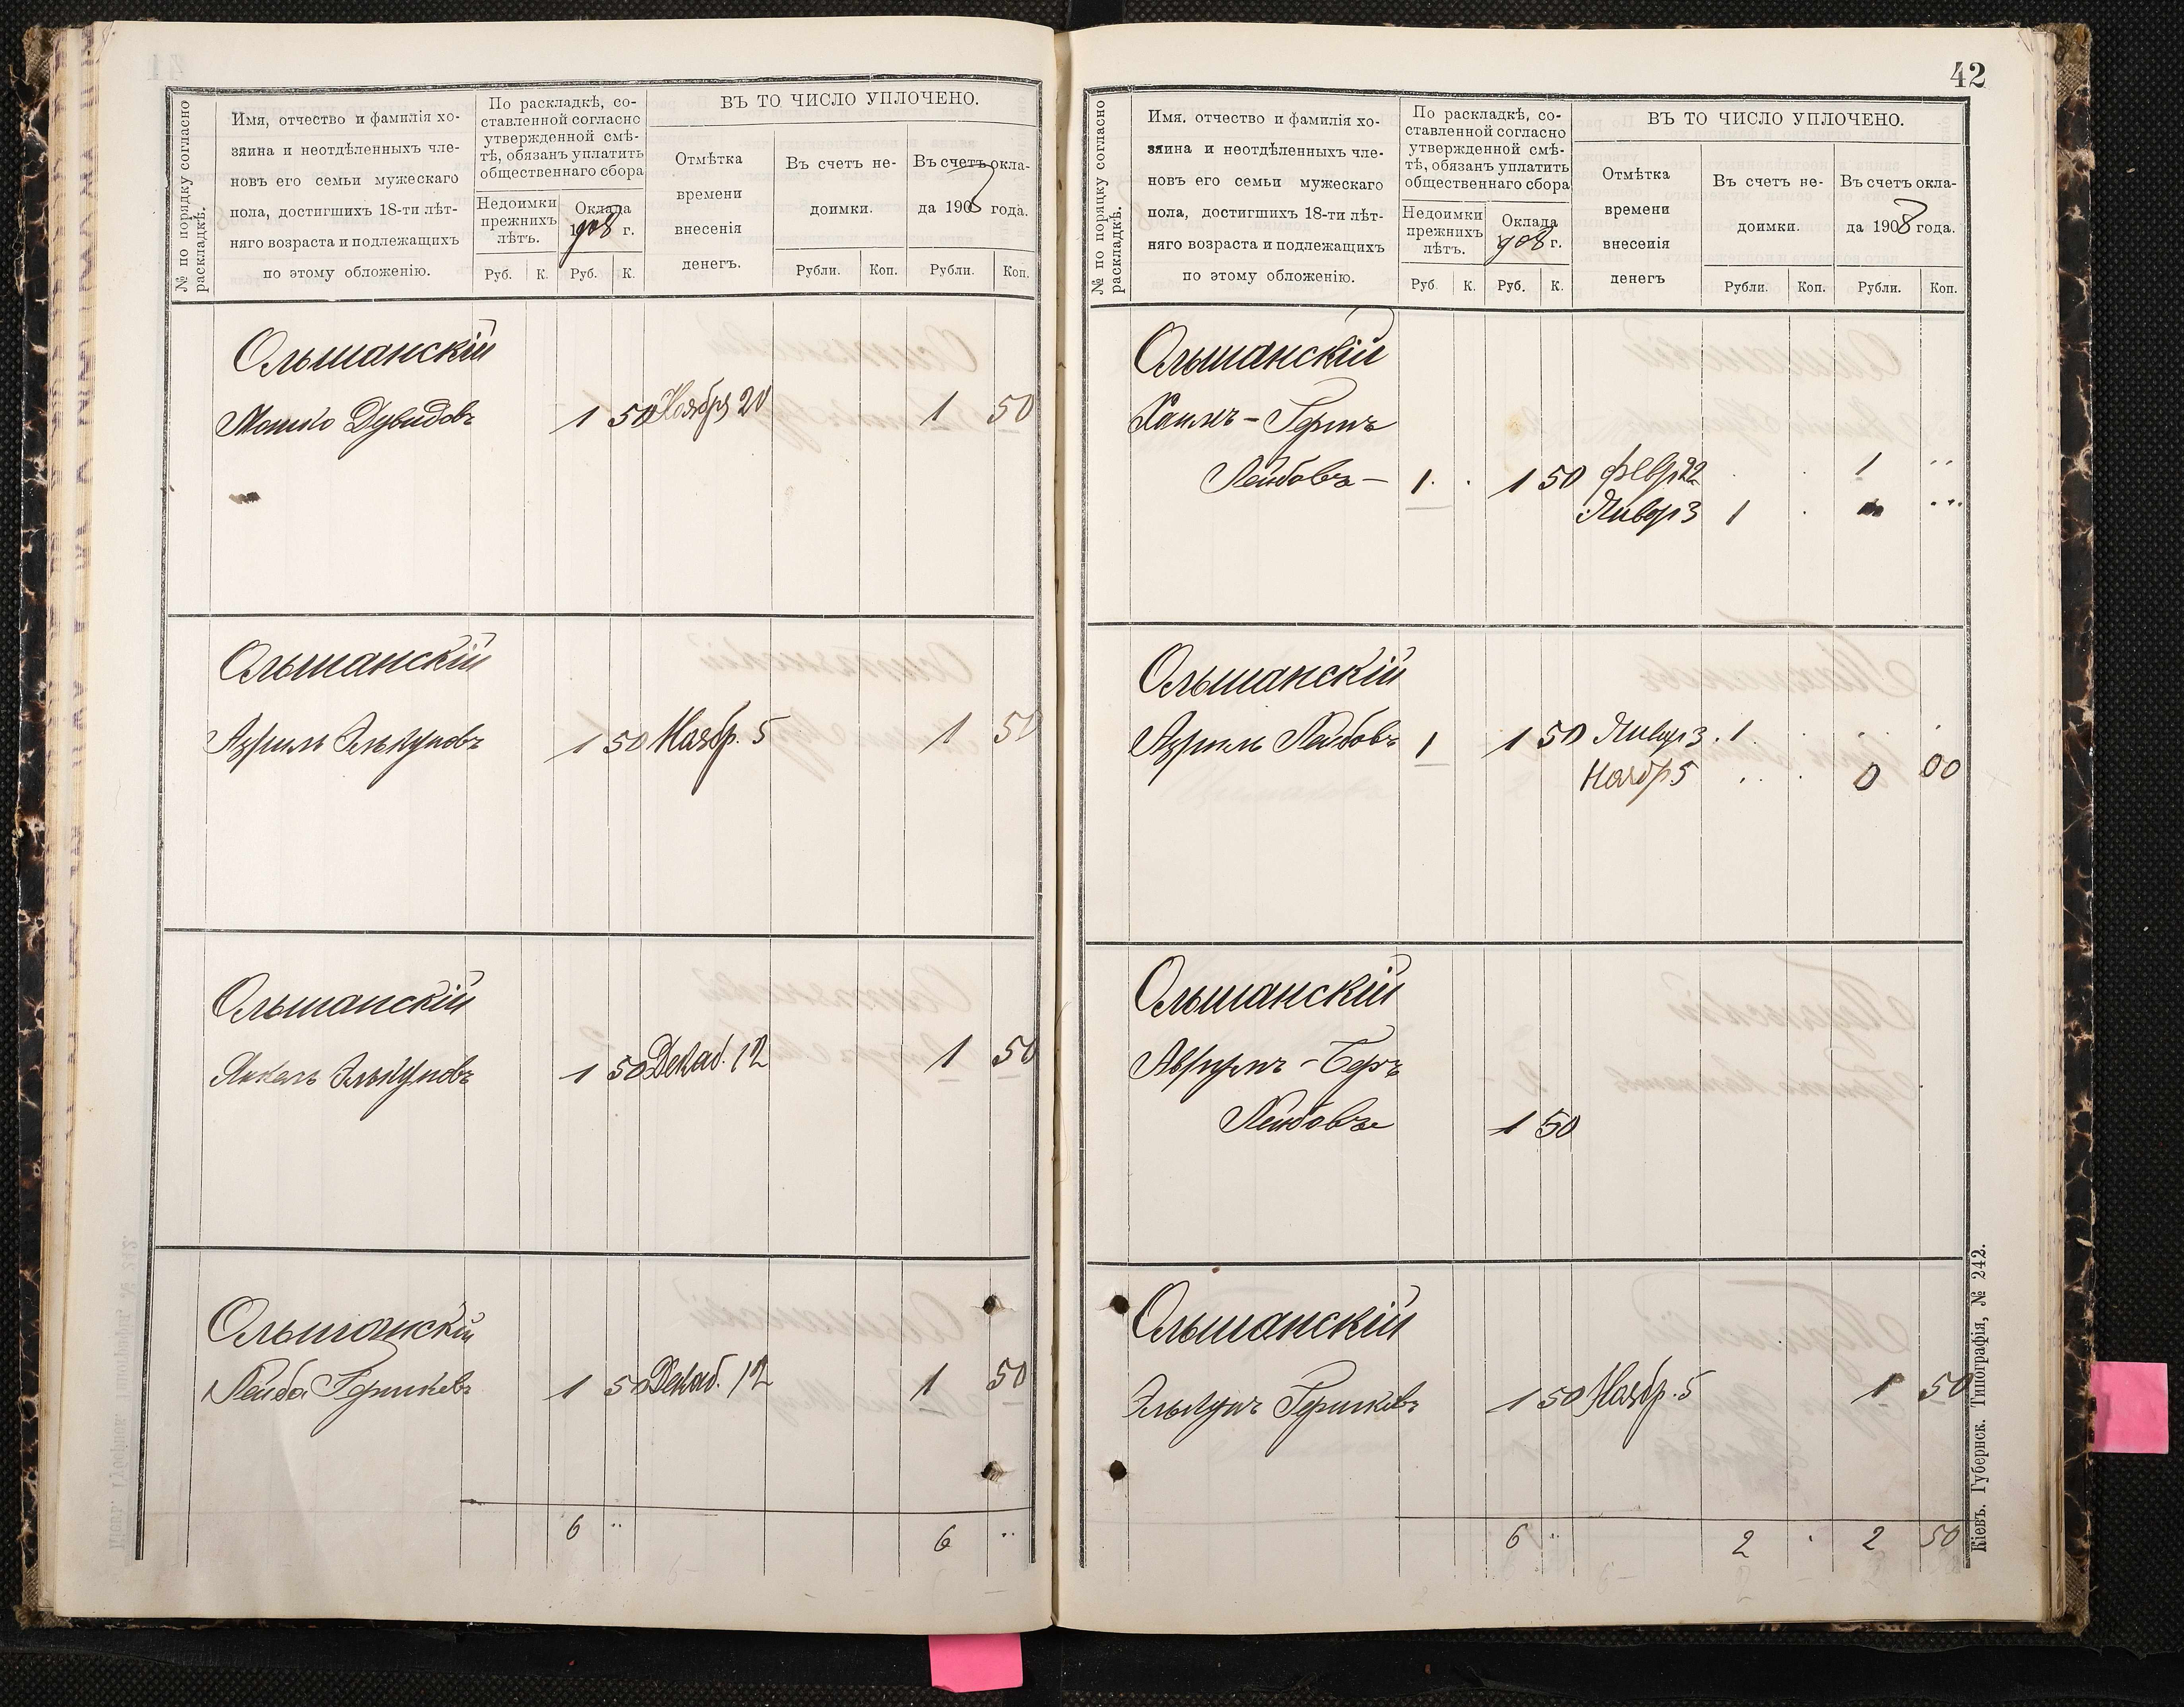 № по порядку согласно
раскладкѣ.
Имя, отчество и фамилія хо-
зяина и неотдѣленныхъ чле-
новъ его семьи мужескаго
пола, достигшихъ 18-ти лѣт-
няго возраста и подлежащихъ
по этому обложенію.
По раскладкѣ, со-
ставленной согласно
утвержденной смѣ-
тѣ, обязанъ уплатить
общественнаго сбора
Недоимки
прежнихъ
лѣтъ.
Оклада
1908 г.
Руб. К. Руб. К.
ВЪ ТО ЧИСЛО УПЛОЧЕНО.
Отмѣтка
времени
внесенія
денегъ.
Въ счетъ не-
доимки.
Въ счетъ окла-
да 1908 года.
Рубли. Коп. Рубли. Коп.
Ольшанскій
Мошко Дувидовъ 1 50 Ноября 20 1 50
Ольшанскій
Азриль Элькуновъ 1 50 Ноябр. 5 1 50
Ольшанскій
Янкель Элькуновъ 1 50 Декаб. 12 1 50
Ольшанскій
Лейба Гершковъ 1 50 Декаб. 12 1 50
6 .. 6 ..
42
№ по порядку согласно
раскладкѣ.
Имя. отчество и фамилія хо-
зяина и неотдѣленныхъ чле-
новъ его семьи мужескаго
пола, достигшихъ 18-ти лѣт-
няго возраста и подлежащихъ
по этому обложенію.
По раскладкѣ, со-
ставленной согласно
утвержденной смѣ-
тѣ, обязанъ уплатить
общественнаго сбора
Недоимки
прежнихъ
лѣтъ.
Оклада
908 г.
Руб. К. Руб. К.
ВЪ ТО ЧИСЛО УПЛОЧЕНО.
Отмѣтка
времени
внесенія
денегъ
Въ счетъ не-
доимки.
Въ счетъ окла-
да 1908 года.
Рубли. Коп. Рубли. Коп.
Ольшанскій
Хаимъ-Гершъ
Лейбовъ - 1 . . 1 50 Февр 22 . . 1 ..
Январ 3 1 . ...
Ольшанскій
Азриль Лейбовъ 1 1 50 Январ 3 . 1 . . . .
Ноябр 5 . . . 0 00
Ольшанскій
Аврумъ-Беръ
Лейбовъ 1 50
Ольшанскій
Элькунъ Гершковъ 1 50 Ноябр. 5 1 50
6 .. 2 . 2 50
Кіевъ. Губернск. Типографія, № 242.